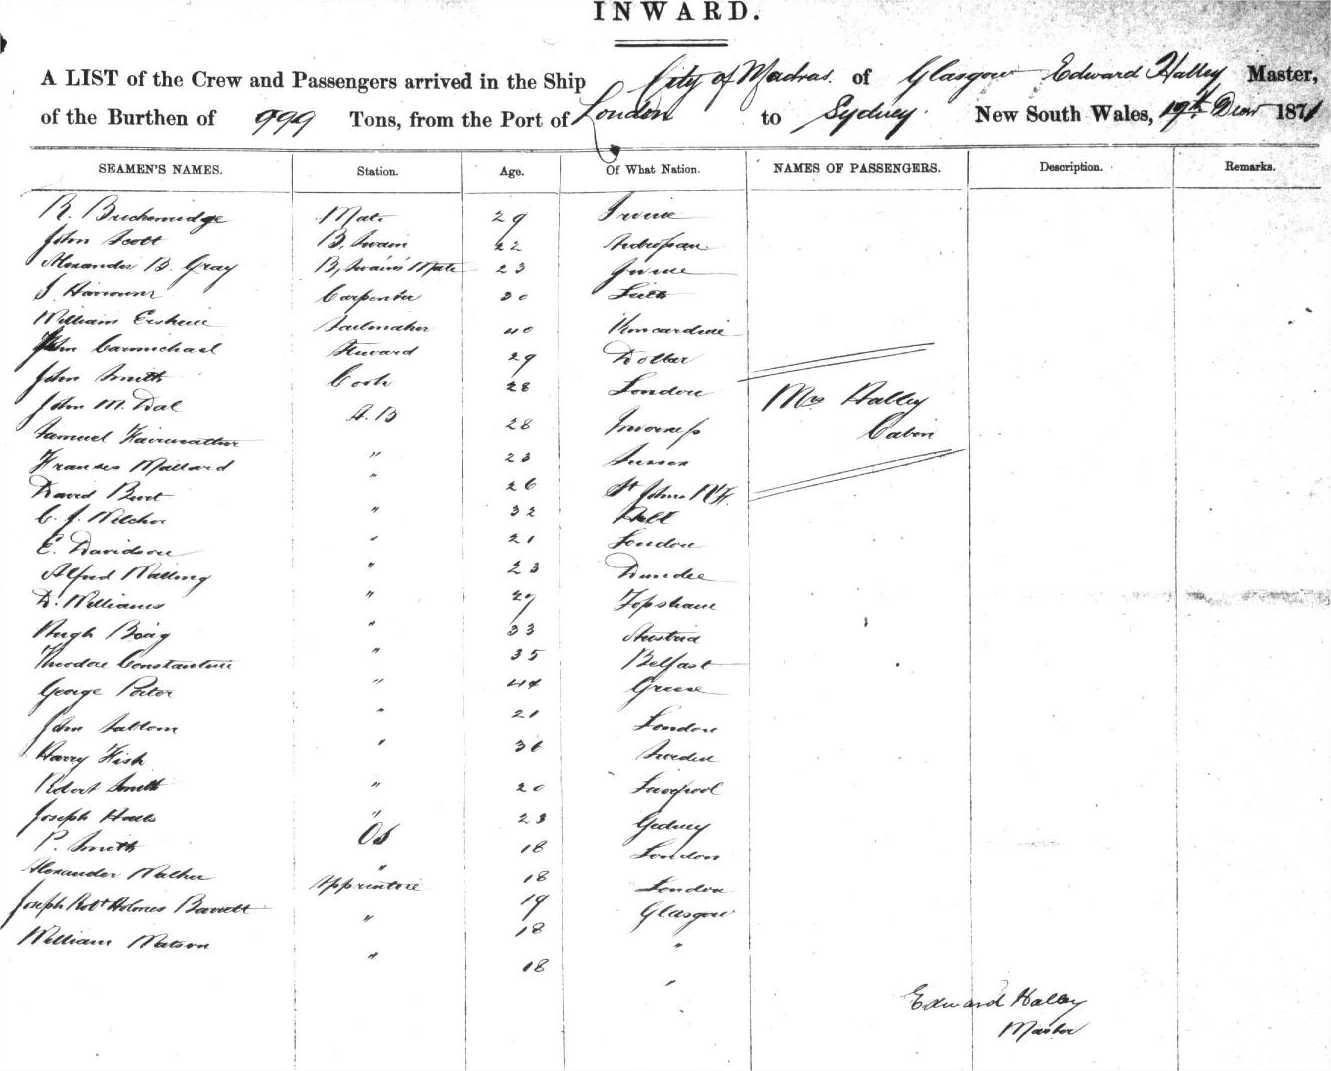 INWARD.
A LIST of the Crew and Passengers arrived in the Ship City of Madras. of Glasgow Edward Halley Master,
of the Burthen of 999 Tons, from the Port of London to Sydney. New South Wales, 19th Decr 1871
SEAMEN'S NAMES. Station. Age. Of What Nation. NAMES OF PASSENGERS. Description. Remarks.
R. Mate 29 Irvine
John Scott B, Swain 22
Alexander B. Gray B, Swain's Mate 23 Irvine
J Carpenter 30 Leith
William Erskine Sailmaker 40 Kincardine
John Carmichael Steward 29 Dollar
John Smith Cook 28 London Mrs Halley
John M. Dal A.B 28 Inverness Cabin
Samuel Fairweather " 23 Sussex
Frances Mallard " 26 St Johns N.F.
David Burt " 32
C. J. " 21 London
E. Davidson " 23 Dundee
Alfred " 29 Topsham
D. Williams " 33 Austria
Hugh Boag " 35 Belfast
Theodore Constantine " 44 Greese
George Porter " 21 London
John " 36 Sweden
Harry Fish " 20 Liverpool
Robert Smith " 23 Gedney
Joseph OS 18 London
P. Smith " 18 London
Alexander Walker Apprentice 19 Glasgow
Joseph Robt Holmes Barrett " 18 "
William Watson " 18 "
Edward Halley
Master